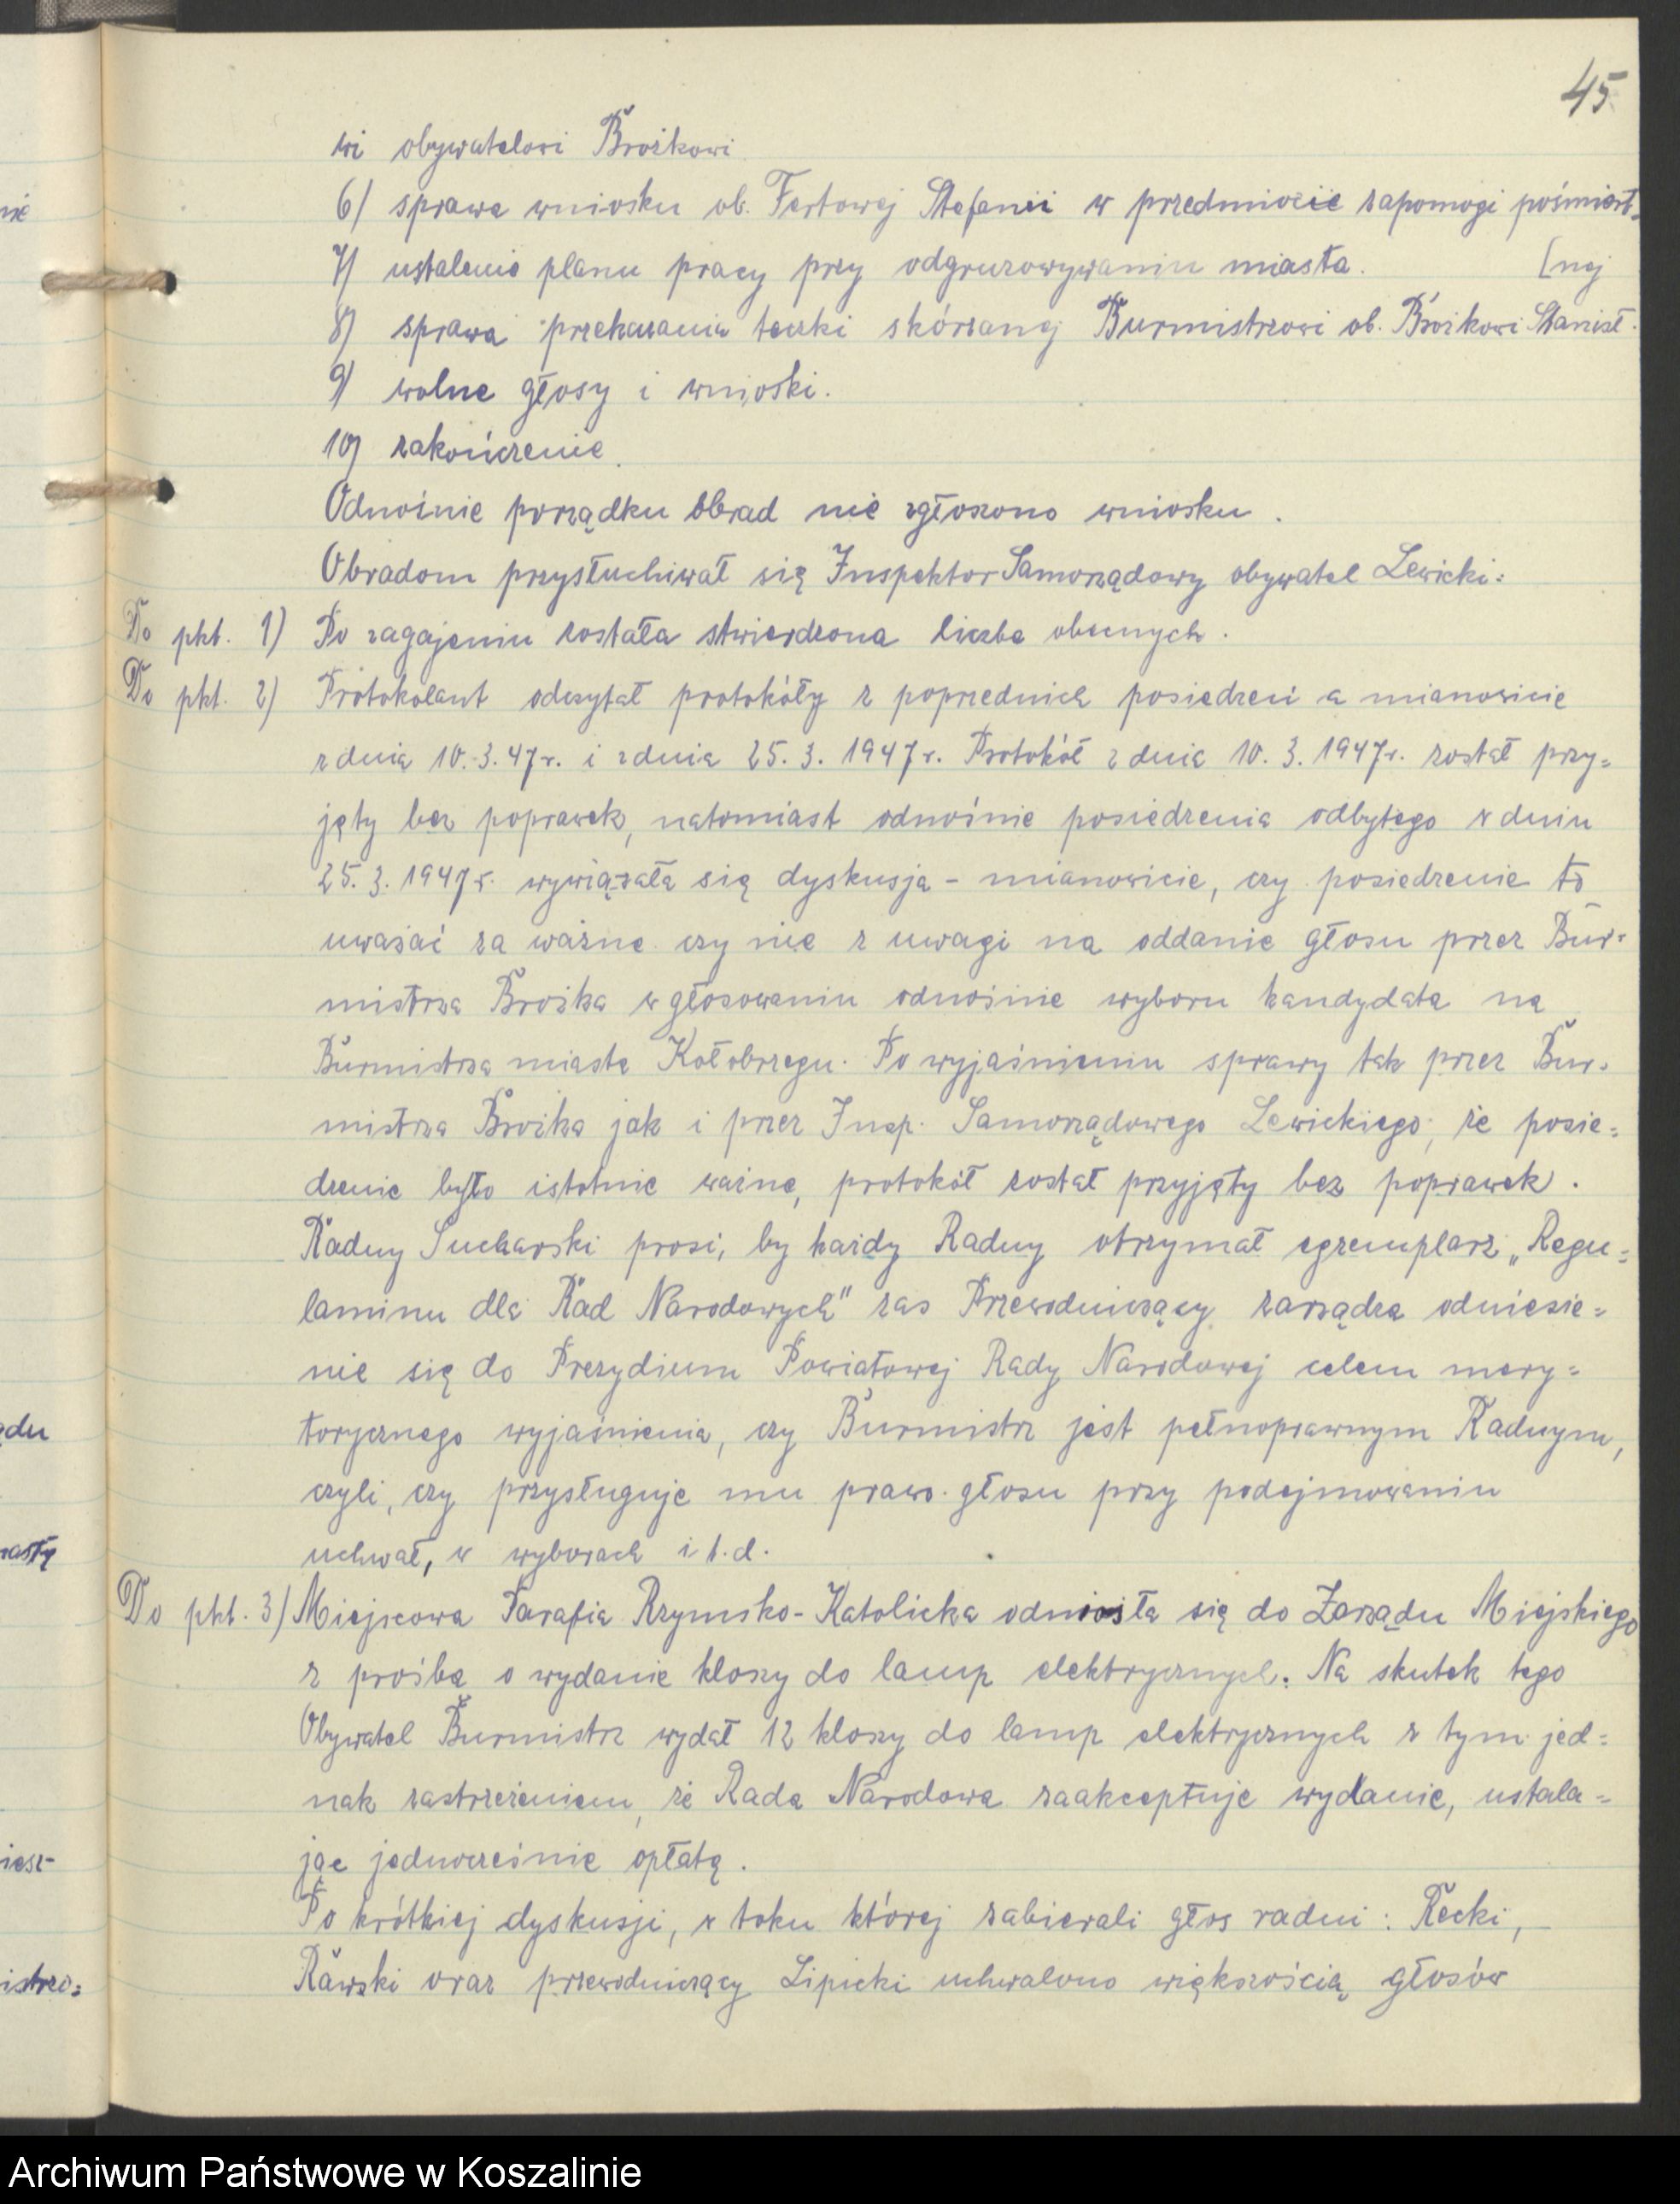 45
wi obywatelowi Brożkowi
6) sprawa wniosku ob. Fertowej Stefanii w przedmiocie zapomogi pośmiert-
7) ustalenie planu pracy przy odgruzowywaniu miasta. [nej
8) sprawa przekazania teczki skórzanej Burmistrzowi ob. Brożkowi Stanisł.
9) wolne głosy i wnioski.
10) zakończenie.
Odnośnie porządku obrad nie zgłoszono wniosku.
Obradom przysłuchiwał się Inspektor Samorządowy obywatel Lewicki.
Do pkt. 1) Po zagajeniu została stwierdzona liczba obecnych.
Do pkt. 2) Protokolant odczytał protokóły z poprzednich posiedzeń a mianowicie
z dnia 10.3.47r. i z dnia 25.3.1947r. Protokół z dnia 10.3.1947r. został przy=
jęty bez poprawek, natomiast odnośnie posiedzenia odbytego w dniu
25.3.1947r. wywiązała się dyskusja - mianowicie, czy posiedzenie to
uważać za ważne czy nie z uwagi na oddanie głosu przez Bur=
mistrza Brożka w głosowaniu odnośnie wyboru kandydata na
Burmistrza miasta Kołobrzegu. Po wyjaśnieniu sprawy tak przez Bur=
mistrza Brożka jak i przez Insp. Samorządowego Lewickiego, że posie=
dzenie było istotnie ważne, protokół został przyjęty bez poprawek.
Radny Sucharski prosi, by każdy Radny otrzymał egzemplarz „Regu=
laminu dla Rad Narodowych" zaś Przewodniczący zarządza odniesie=
nie się do Prezydium Powiatowej Rady Narodowej celem mery=
torycznego wyjaśnienia, czy Burmistrz jest pełnoprawnym Radnym,
czyli, czy przysługuje mu prawo głosu przy podejmowaniu
uchwał, w wyborach i t.d.
Do pkt. 3) Miejscowa Parafia Rzymsko-Katolicka odniosła się do Zarządu Miejskiego
z prośbą o wydanie kloszy do lamp elektrycznych. Na skutek tego
Obywatel Burmistrz wydał 12 kloszy do lamp elektrycznych z tym jed=
nak zastrzeżeniem, że Rada Narodowa zaakceptuje wydanie, ustala=
jąc jednocześnie opłatę.
Po krótkiej dyskusji, w toku której zabierali głos radni: Recki,
Rawski oraz przewodniczący Lipicki uchwalono większością głosów
nie
ądu
miesz-
istrzo=
Archiwum Państwowe w Koszalinie